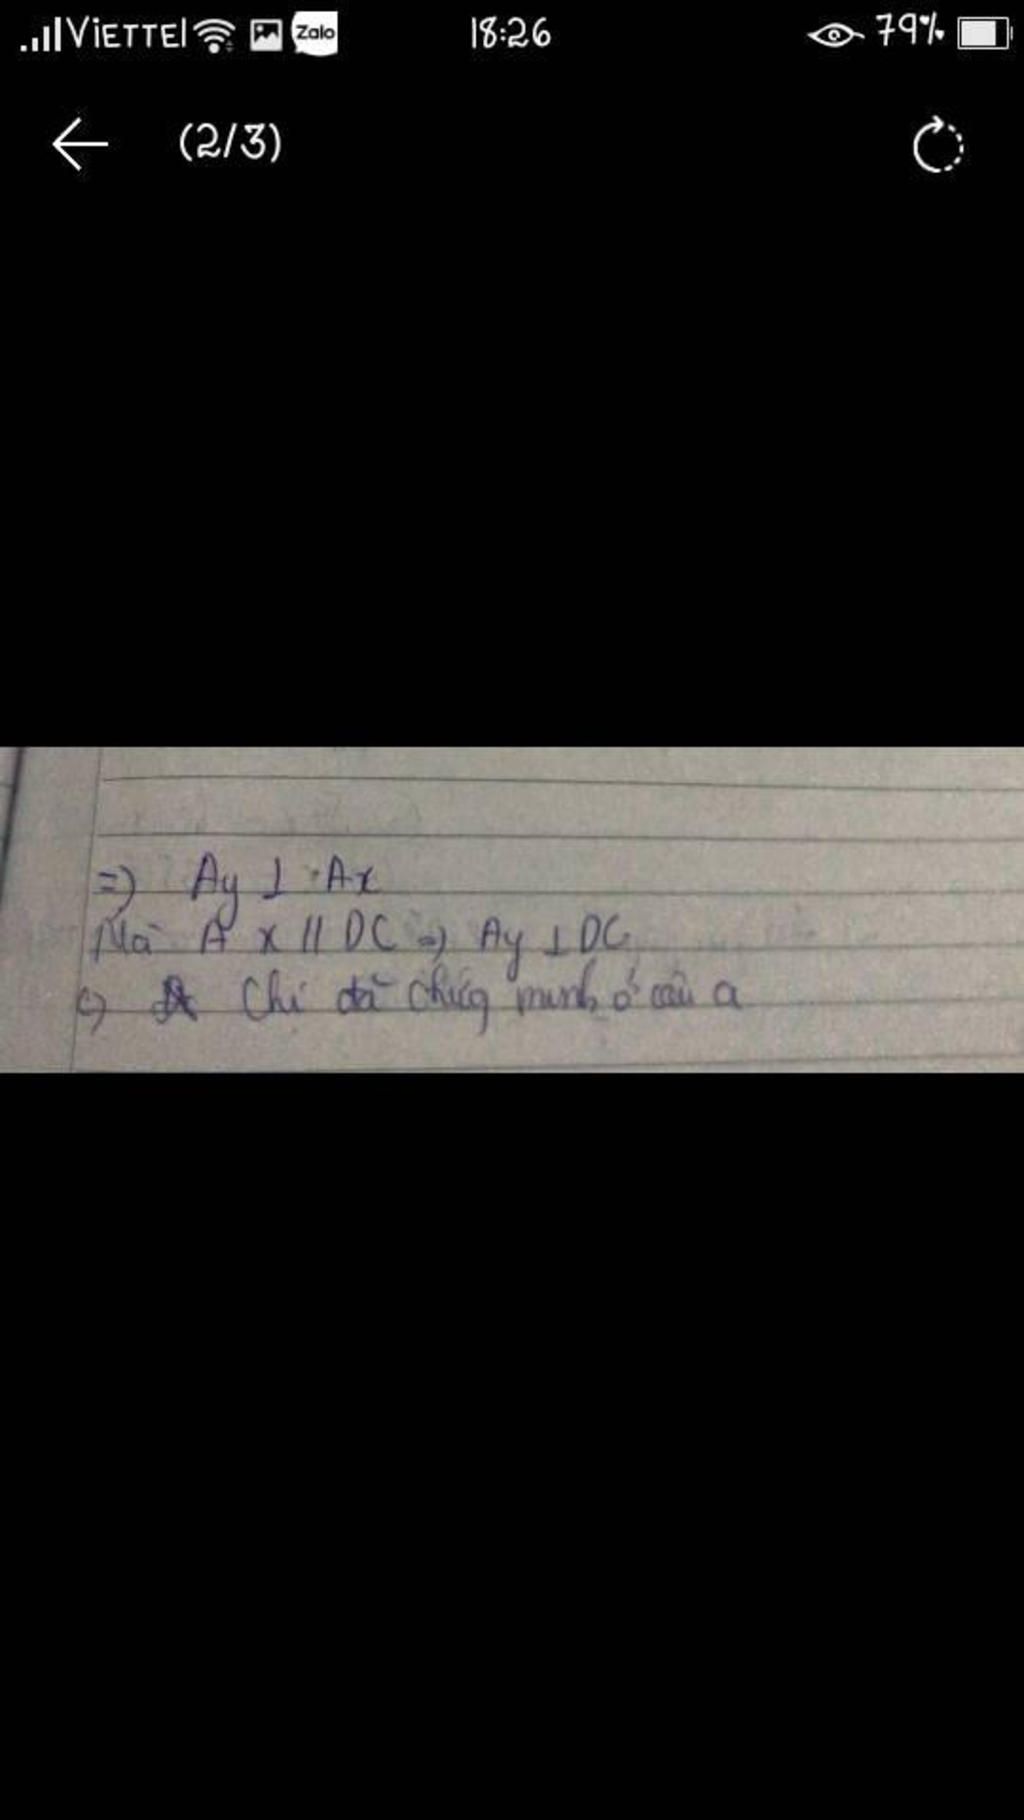 VIETTEL Zalo 18:26 79%
(2/3)
=) Ay ⊥ Ax
Mà A x // DC => Ay ⊥ DC
c) Chị đã chứng minh ở câu a